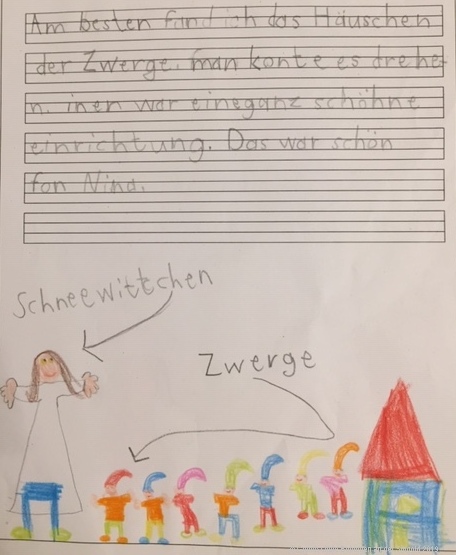 Am besten fand ich das Häuschen
der Zwerge. man konte es drehe
n. inen war eineganz schöhne
einrichtung. Das war schön
fon Nina.
Schneewittchen
Zwerge